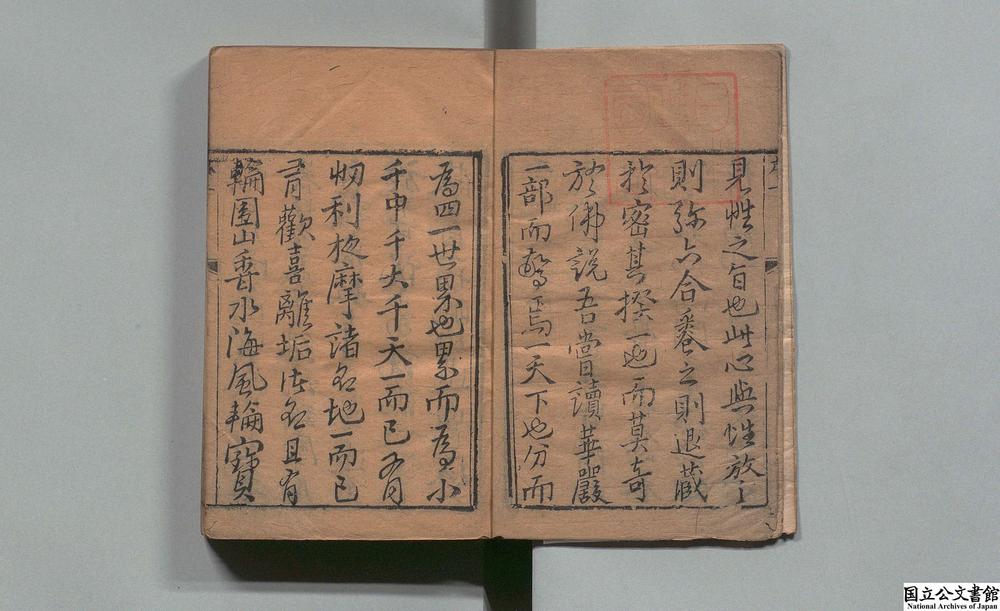 見性之旨也此心與性放之
則弥六合卷之則退藏
於密其揆一也而莫奇
於佛說吾嘗讀華嚴
一部而驚焉一天下也分而
為四一世界也累而為小
千中千大千天一而已有
忉利夜摩諸名地一而已
有歡喜離垢諸名且有
輪圍山香水海風輪寶
国立公文書館
National Archives of Japan